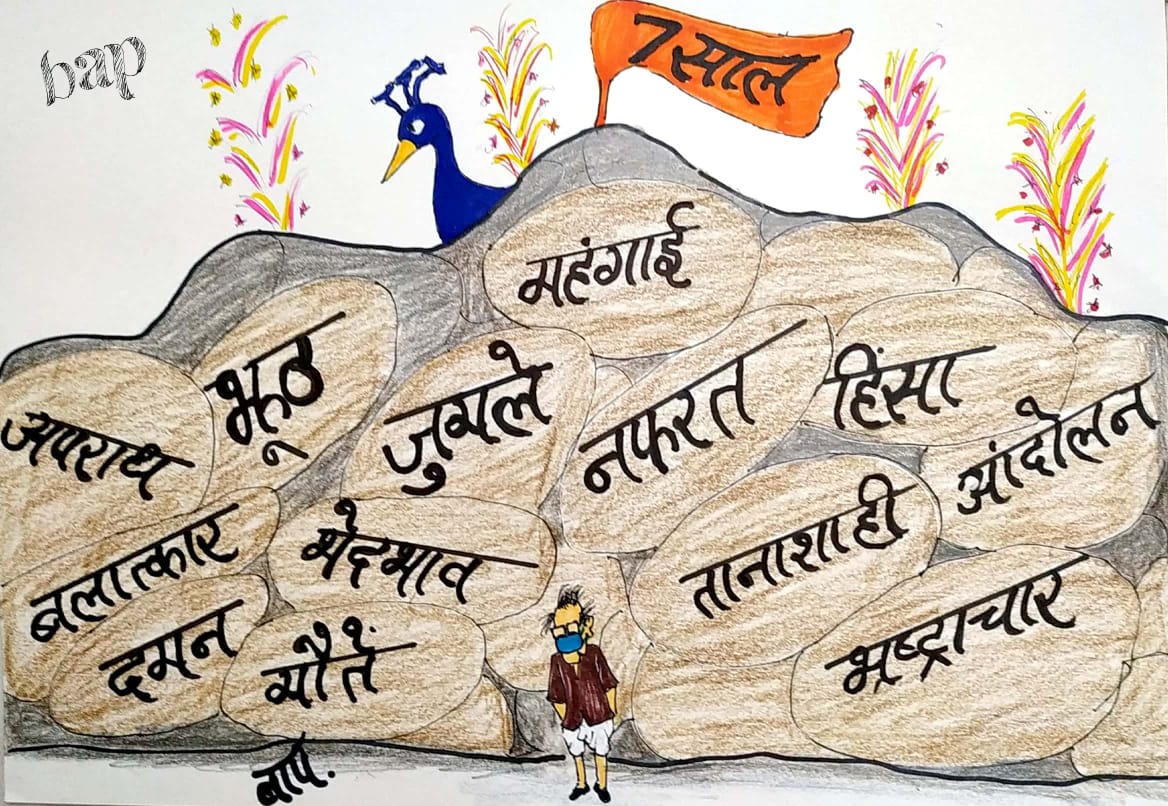 bap
7 साल
महंगाई
झूठ
जुमले
नफरत
हिंसा
अपराध
आंदोलन
बलात्कार
भेदभाव
तानाशाही
दमन
मौतें
भ्रष्ट्राचार
बाप.